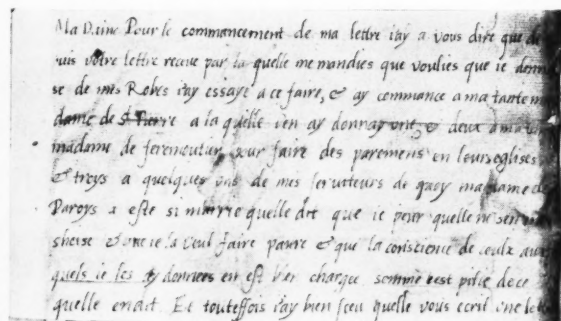 Ma Dame Pour le commancement de ma lettre i'ay a vous dire que de
uis vôtre lettre receue par la quelle me mandies que voulies que ie donn
se de mes Robes i'ay essayé a ce faire, & ay commance a ma tante m
dame de St Pierre a la quelle i'en ay donnay une, & deux a ma
madame de feremoutier pour faire des paremens en leurs eglises
& troys a quelques uns de mes serviteurs de quoy madame de
Paroys a esté si marrie quelle dit que ie peur quelle ne sen
& que ie la veul faire pauvre & que la consciense de ceulx aux
quels ie les ay donnees en est bien charge, somme cest pitié de ce
quelle en dit Et touteffois i'ay bien sceu quelle vous ecrit une lett